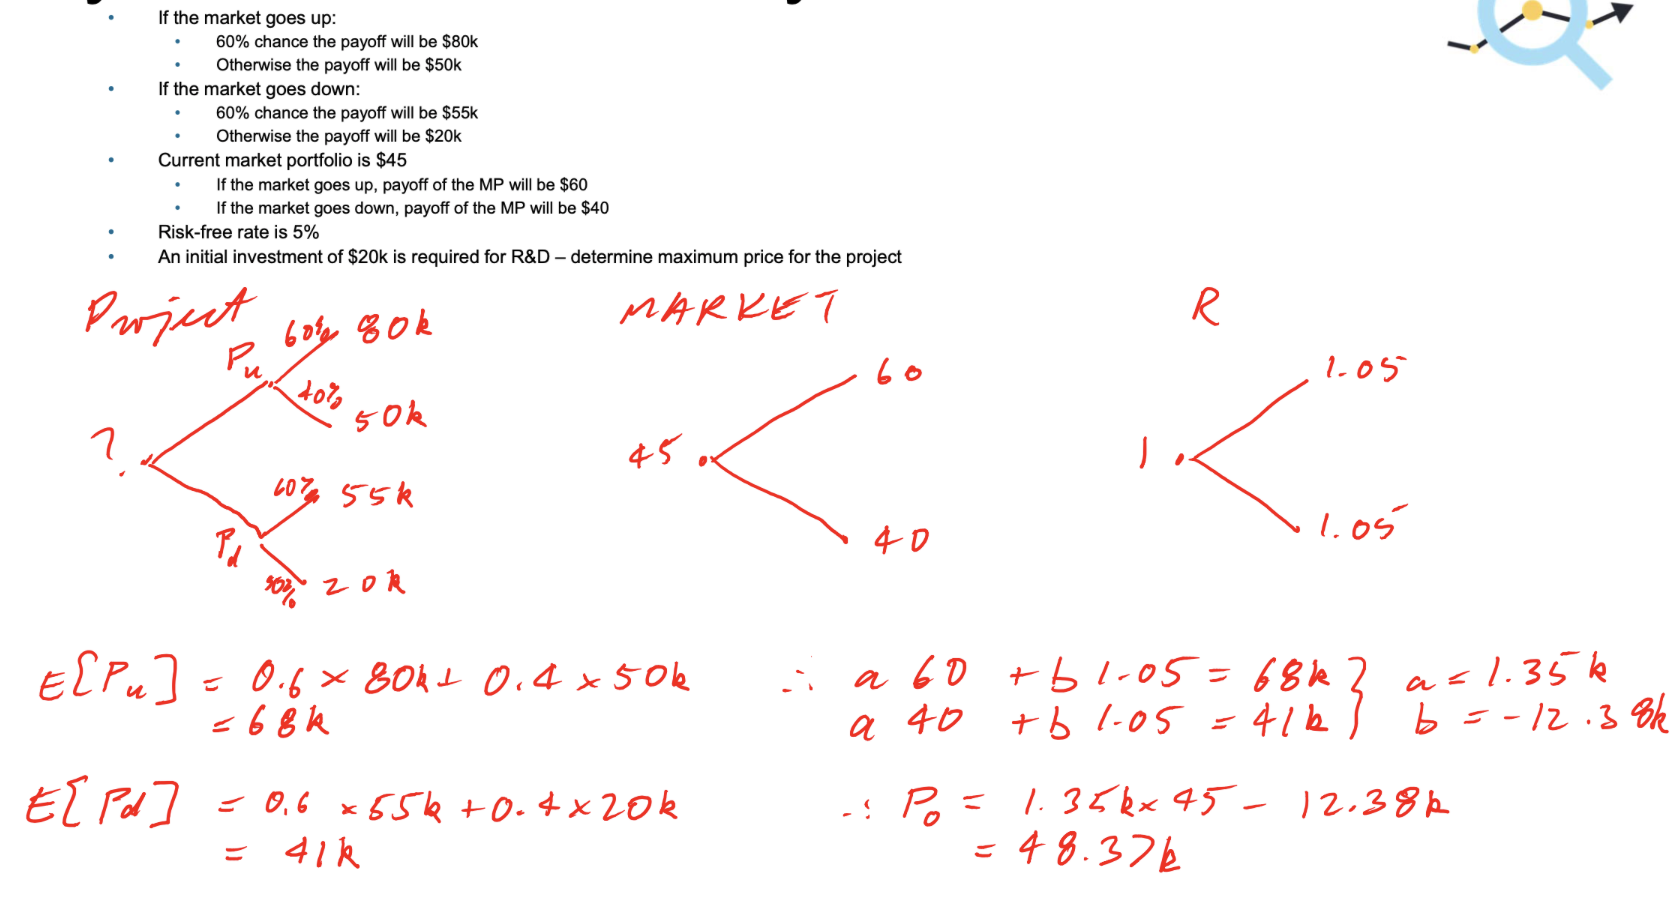 If the market goes up:
60% chance the payoff will be $80k
Otherwise the payoff will be $50k
If the market goes down:
60% chance the payoff will be $55k
Otherwise the payoff will be $20k
Current market portfolio is $45
If the market goes up, payoff of the MP will be $60
If the market goes down, payoff of the MP will be $40
Risk-free rate is 5%
An initial investment of $20k is required for R&D – determine maximum price for the project
Project
Pu
60% 80k
40% 50k
?
Pd
60% 55k
20k
MARKET
60
45
40
R
1.05
1
1.05
E[Pu] = 0.6 × 80k + 0.4 × 50k
= 68k
E[Pd] = 0.6 × 55k + 0.4 × 20k
= 41k
∴ a 60 + b 1.05 = 68k } a = 1.35k
a 40 + b 1.05 = 41k } b = -12.38k
∴ P0 = 1.35k × 45 - 12.38k
= 48.37k